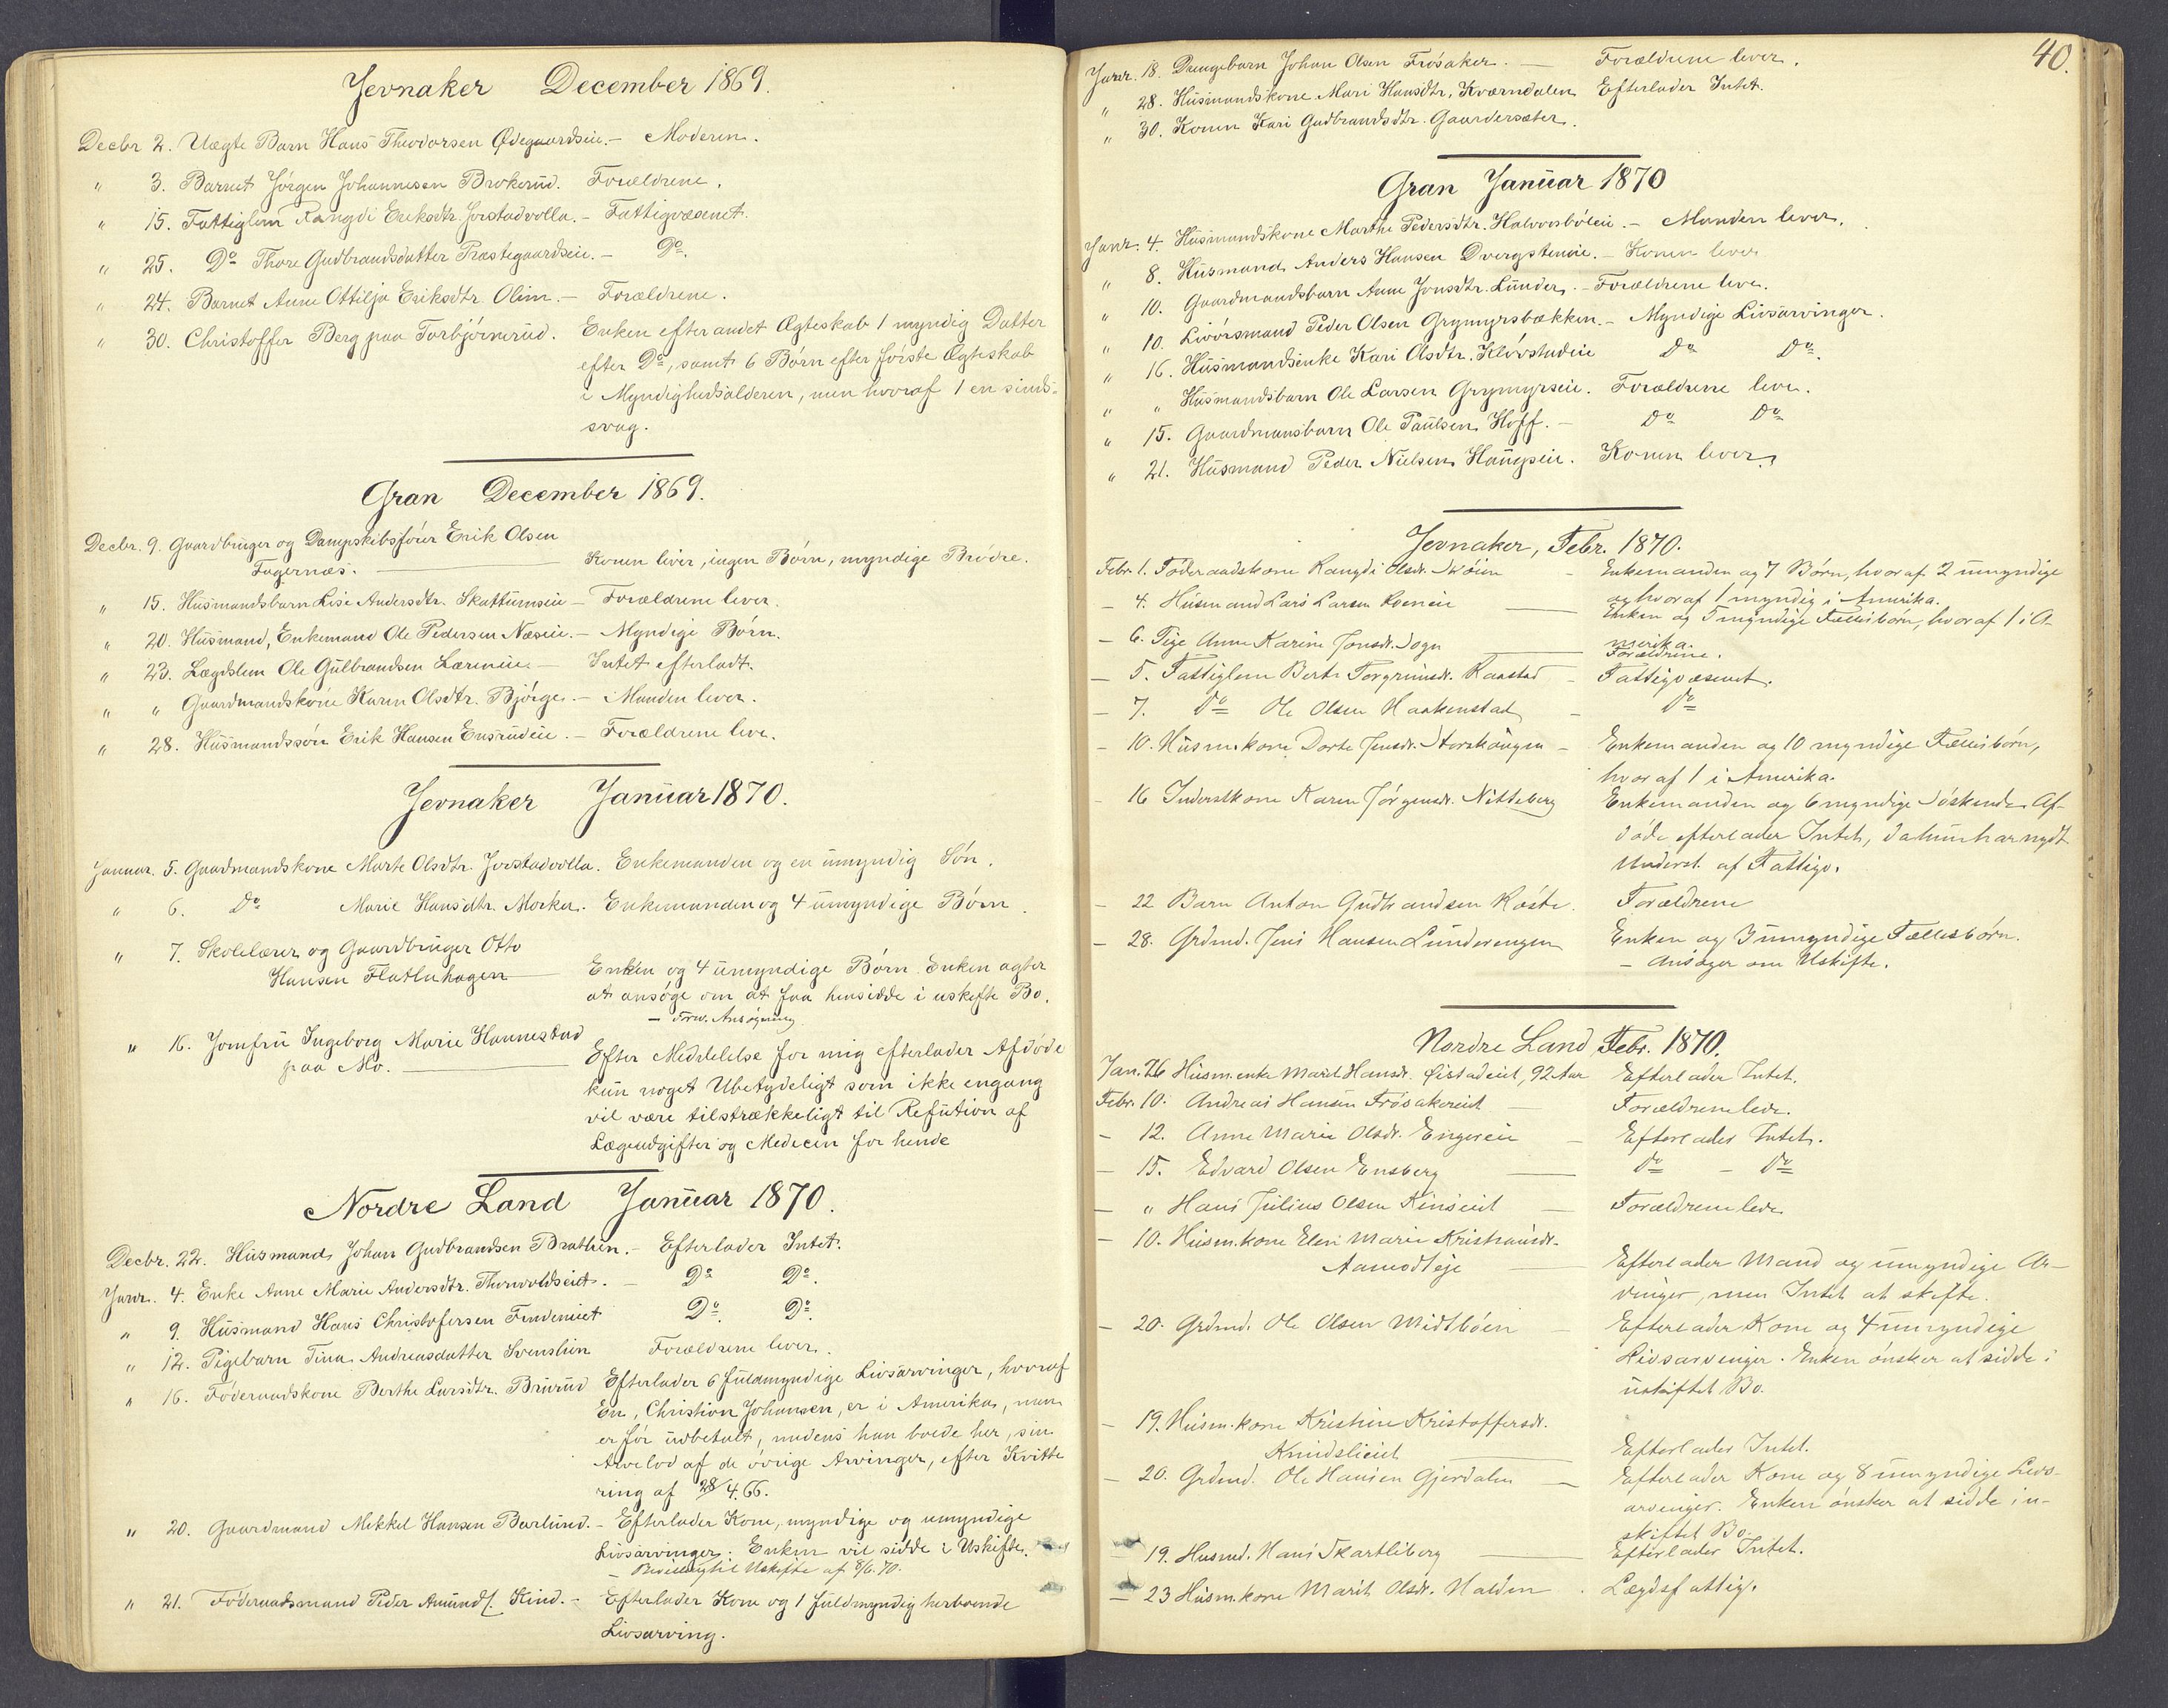 Jevnaker December 1869.
Decbr 2. Uægte Barn Hans Theodorsen Ødegaardseie. — Moderen.
" 3. Barnet Jörgen Johannesen Brokerud. Forældrene.
" 15. Fattiglem Rangdi Eriksdtr. Jorstadvolla. — Fattigvæsenet.
" 25. Do Thore Gudbrandsdatter Præstegaardseie. — Do.
" 24. Barnet Anne Ottilja Eriksdtr. Olim. — Forældrene.
" 30. Christoffer Berg paa Torbjörnerud. Enken efter andet Ægteskab 1 myndig Datter
efter Do, samt 6 Börn efter förste Ægteskab
i Myndighedsalderen, men hvoraf 1 en sinds-
svag.
Gran December 1869.
Decbr. 9. Gaardbruger og Dampskibsförer Erik Olsen
Fagernæs. — Konen lever, ingen Börn, myndige Brödre.
" 15. Husmandsbarn Lise Andersdtr. Skattumseie — Forældrene lever.
" 20. Husmand, Enkemand Ole Pedersen Næseie. — Myndige Börn.
" 23. Lægdslem Ole Gulbrandsen Læreneie. — Intet efterladt.
" " Gaardmandskone Karen Olsdtr. Björge. — Manden lever.
" 28. Husmandssön Erik Hansen Ensrudeie. — Forældrene leve.
Jevnaker Januar 1870.
Januar. 5. Gaardmandskone Marte Olsdtr. Jorstadvolla. Enkemanden og en umyndig Sön.
" 6. Do Marie Hansdtr. Morken. Enkemanden og 4 umyndige Börn.
" 7. Skolelærer og Gaardbruger Otto
Hansen Flatlahagen — Enken og 4 umyndige Börn. Enken agter
at ansöge om at faa hensidde i uskiftet Bo.
— Forv. Ansögning
" 16. Jomfru Ingeborg Marie Hannestad
paa Mo. — Efter Meddelelse for mig efterlader Afdöde
kun noget Ubetydeligt som ikke engang
vil være tilstrækkeligt til Refution af
Lægeudgifter og Medecin for hende
Nordre Land Januar 1870.
Decbr. 22. Husmand Johan Gudbrandsen Brathen. — Efterlader Intet.
Janr. 4. Enke Anne Marie Andersdtr. Thorvoldseiet. — Do Do.
" 9. Husmand Hans Christofersen Findeniet Do. Do.
" 12. Pigebarn Tina Andreasdatter Svenslien Forældrene lever.
" 16. Föderaadskone Berthe Larsdtr. Brurud Efterlader 6 fuldmyndige Livsarvinger, hvoraf
En, Christian Johansen, er i Amerika, men
er för udbetalt, medens han boede her, sin
Arvelod af de övrige Arvinger, efter Kvitte
ring af 28/4.66.
" 20. Gaardmand Mikkel Hansen Barlund. — Efterlader Kone, myndige og umyndige
Livsarvinger. Enken vil sidde i Uskifte.
— Bevilling til Uskifte af 8/6.70.
" 21. Föderaadsmand Peder Amunds. Kind. — Efterlader Kone og 1 fuldmyndig herboende
Livsarving.
40.
Janr. 18. Drengebarn Johan Olsen Frösaker. — Forældrene lever.
" 28. Husmandskone Mari Hansdtr. Kværndalen Efterlader Intet.
" 30. Konen Kari Gudbrandsdtr. Gaardersæter.
Gran Januar 1870
Janr. 4. Husmandskone Marthe Pedersdtr. Halvorsböleie. — Manden lever.
" 8. Husmand Anders Hansen Dvergsteneie. — Konen lever
" 10. Gaardmandsbarn Anne Jonsdtr. Lunder. — Forældrene leve.
" 10. Livörsmand Peder Olsen Grymyrsbækken. — Myndige Livsarvinger.
" 16. Husmandsenke Kari Olsdtr. Klövstadeie Do Do.
" " Husmandsbarn Ole Larsen Grymyrseie. Forældrene leve.
" 15. Gaardmansbarn Ole Paulsen Hoff. — Do Do
" 21. Husmand Peder Nielsen Haugseie. Konen lever.
Jevnaker, Febr. 1870.
Febr. 1. Föderaadskone Rangdi Olsdr. Moen — Enkemanden og 7 Börn, hvoraf 2 umyndige
og hvoraf 1 myndig i Amerika.
— 4. Husmand Lars Larsen Roeneie — Enken og 5 myndige Fællesbörn, hvoraf 1 i A-
merika.
— 6. Pige Anne Karine Jonsdr. Sogn — Forældrene.
— 5. Fattiglem Berte Torgrimsdr. Raastad — Fattigvæsenet.
— 7. Do Ole Olsen Haakenstad — Do
— 10. Husm.kone Dorte Jensdr. Storekengen — Enkemanden og 10 myndige Fællesbörn,
hvoraf 1 i Amerika.
— 16 Inderstkone Karen Jörgensdr. Nitteberg Enkemanden og 6 myndige Söskende. Af-
döde efterlader Intet, da hun har nydt
Underst. af Fattigv.
— 22 Barn Anton Gudbrandsen Röste. Forældrene
— 28. Grdmd. Jens Hansen Lunderengen Enken og 3 umyndige Fællesbörn.
— Ansöger om Uskifte.
Nordre Land, Febr. 1870.
Jan. 26 Husm.enke Marit Hansdr. Öistadeiet, 92 Aar Efterlader Intet.
Febr. 10. Andreas Hansen Frösakereiet — Forældrene leve.
— 12. Anne Marie Olsdr. Engereie — Efterlader Intet.
— 15. Edvard Olsen Ensberg — Do — Do
— " Hans Julius Olsen Kinseiet — Forældrene leve
— 10. Husm.kone Eleri Marie Kristiansdr.
Aamodteje — Efterlader Mand og umyndige Ar-
vinger, men Intet at skifte.
— 20. Grdmd. Ole Olsen Midtböen — Efterlader Kone og 4 umyndige
Livsarvinger. Enken önsker at sidde i
uskiftet Bo.
— 19. Husm.kone Kristine Kristoffersdr.
Knudslieiet — Efterlader Intet.
— 20. Grdmd. Ole Hansen Gjerdalen — Efterlader Kone og 8 umyndige Livs-
arvinger. Enken önsker at sidde i u-
skiftet Bo.
— 19. Husmd. Hans Skartliberg — Efterlader Intet.
— 23 Husm.kone Marit Olsdr. Halden. Lægdsfattig.